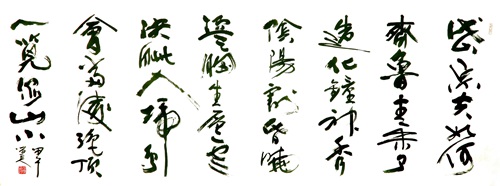 岱宗夫如何
齊魯青未了
造化鐘神秀
陰陽割昏曉
盪胸生層雲
決眦入歸鳥
會當凌絕頂
一覽眾山小
甲午